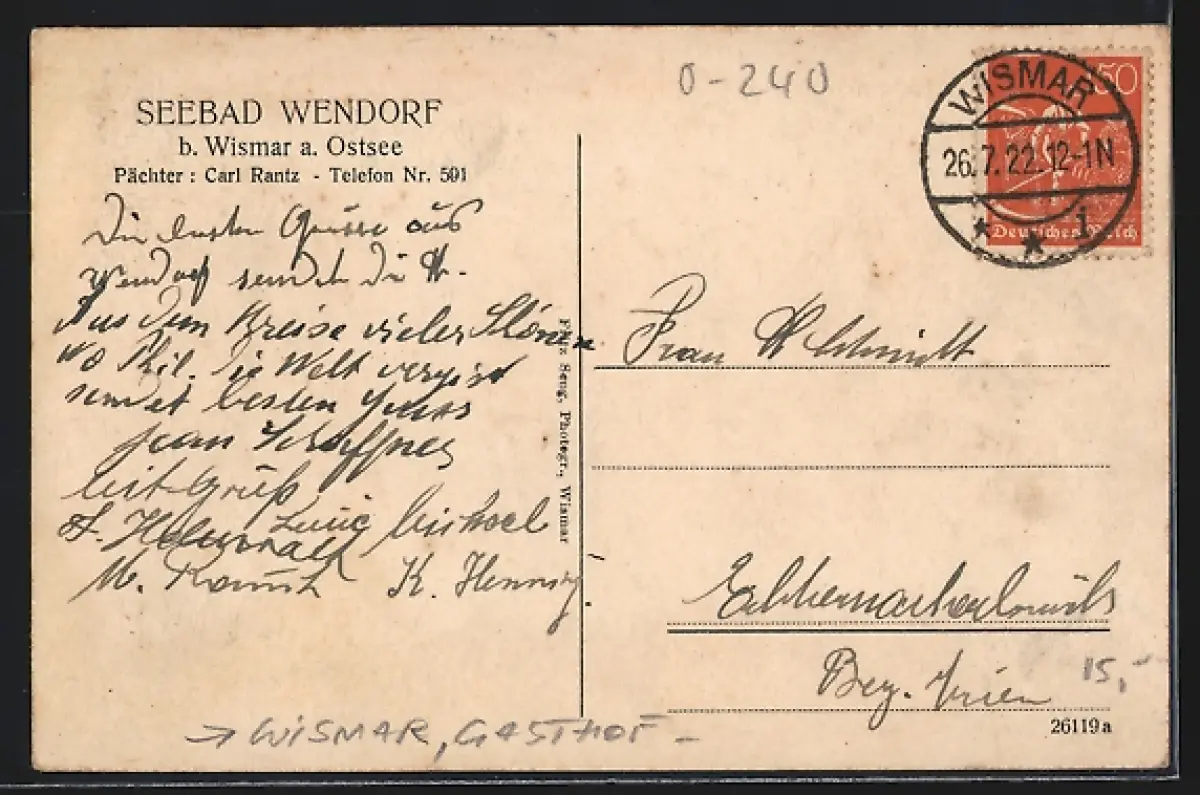 0-240
SEEBAD WENDORF
b. Wismar a. Ostsee
Pächter: Carl Rantz - Telefon Nr. 501
WISMAR
26.7.22.12-1N
* * i
50
Deutsches Reich
Die besten Grüsse aus
Wendorf sendet die
Aus dem Kreise vieler
wo Phil. die Welt vergisst
sendet besten Gruss
Jean Schaffner
Gruß
A.
M. K. Hennig
Fritz Seng, Photogr., Wismar
Frau Schmidt
Bez.
15,-
26119a
→ WISMAR, GASTHOF -